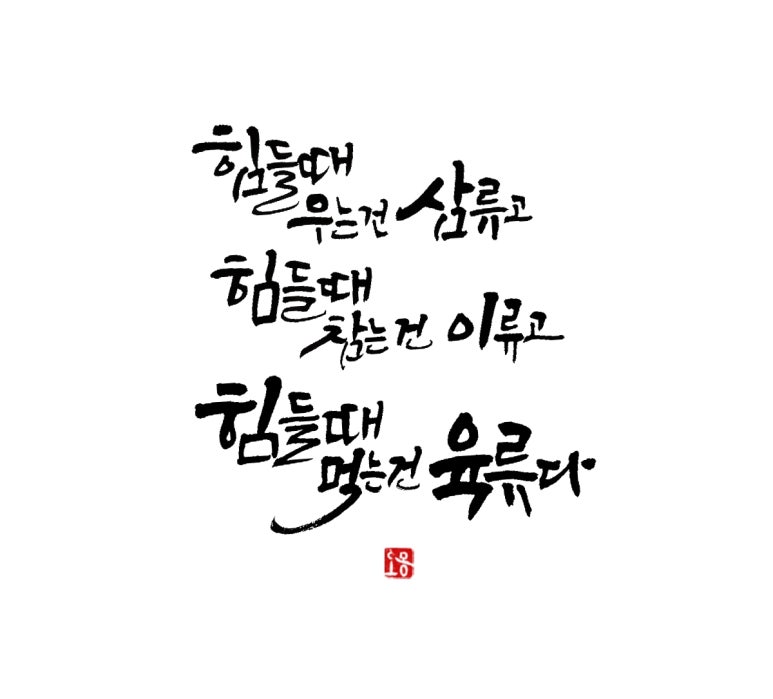 힘들때
우는건 삼류고
힘들때
참는건 이류고
힘들때
먹는건 육류다